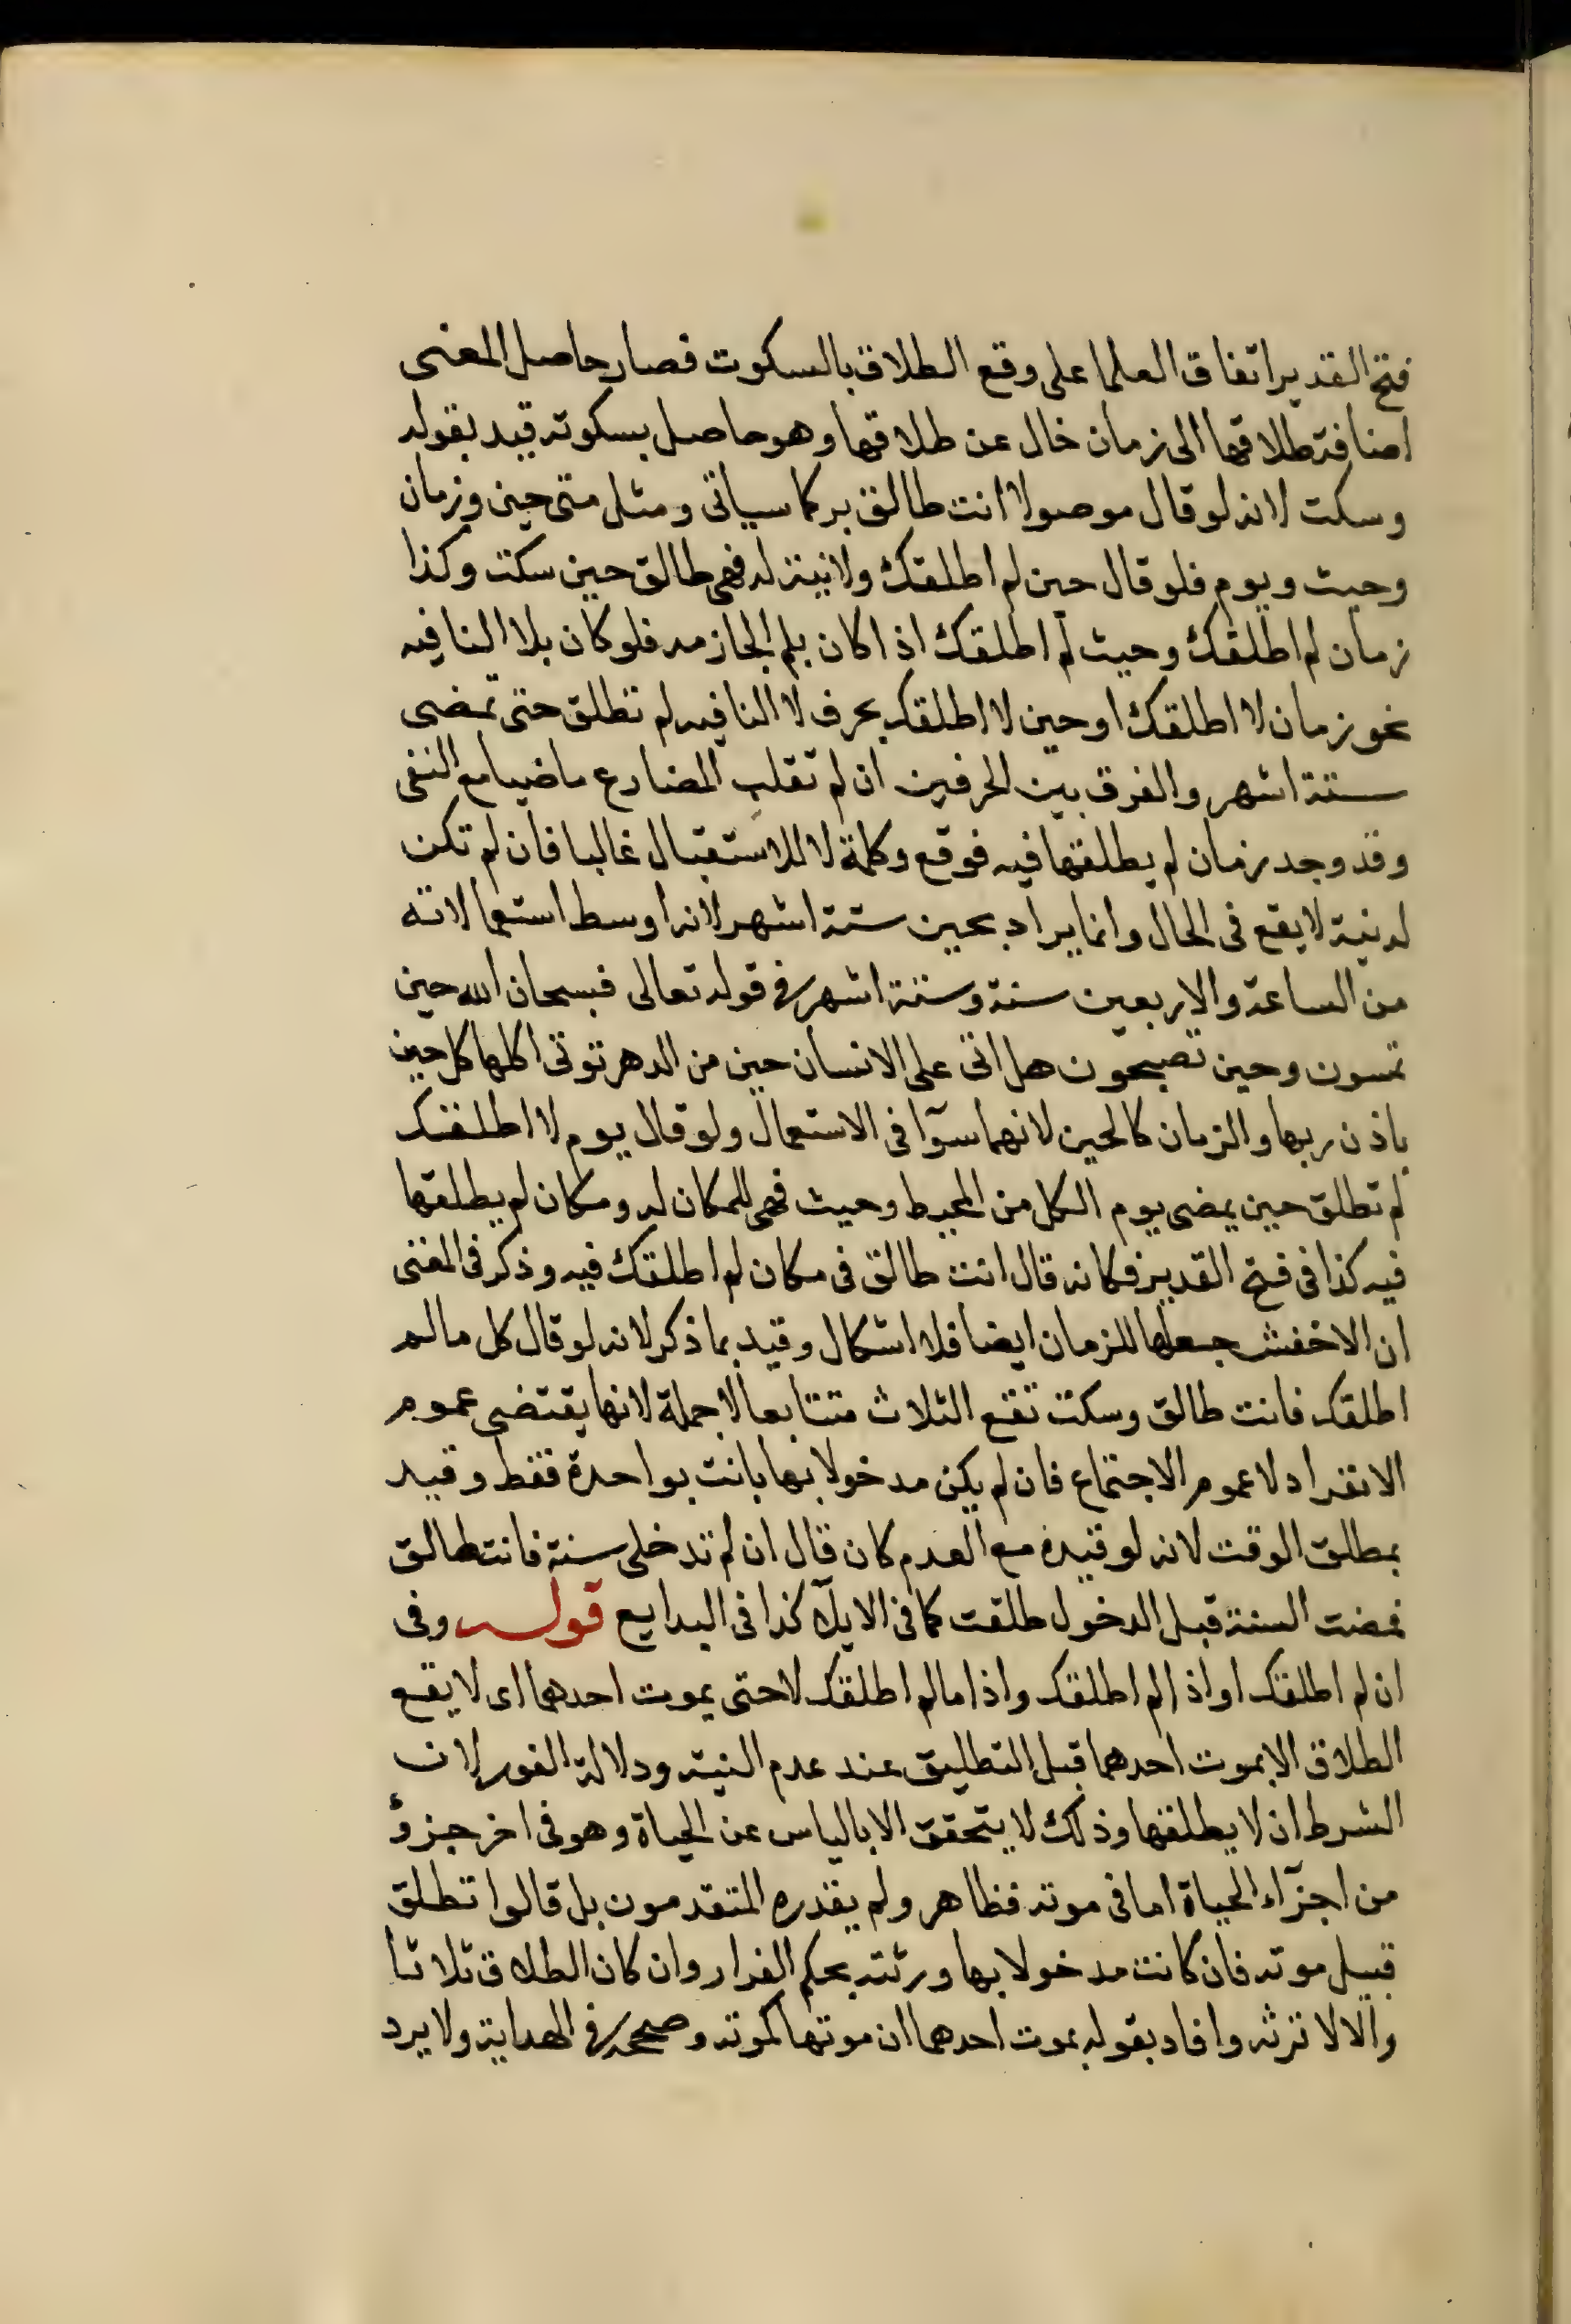 فتح القدير اتفاق العلما على وقع الطلاق بالسكوت فصار حاصل المعنى
اضافة طلاقها الى زمان خال عن طلاقها وهو حاصل بسكوته قيد بقوله
وسكت لانه لو قال موصولا انت طالق بر كما سياتى ومثل متى حين وزمان
وحيث ويوم فلو قال حين لم اطلقك ولا نية له فهى طالق حين سكت وكذا
زمان لم اطلقك وحيث لم اطلقك اذا كان بلم الجازمه فلو كان بلا النافيه
نحو زمان لا اطلقك او حين لا اطلقك بحرف لا النافيه لم تطلق حتى تمضى
ستة اشهر والفرق بين الحرفين ان لم تقلب المضارع ماضيا مع النفى
وقد وجد زمان لم يطلقها فيه فوقع وكلمة لا للاستقبال غالبا فان لم تكن
له نية لا يقع فى الحال وانما يراد بحين ستة اشهر لانه اوسط استعمالاته
من الساعة والاربعين سنة وستة اشهر فى قوله تعالى فبسحان الله حين
تمسون وحين تصبحون هل اتى على الانسان حين من الدهر توتى اكلها كل حين
باذن ربها والزمان كالحين لانهما سوآ فى الاستعمال ولو قال يوم لا اطلقك
لم تطلق حين يمضى يوم الكل من المحيط وحيث فهى للمكان له ومكان لم يطلقها
فيه كذا فى فتح القدير فكانه قال انت طالق فى مكان لم اطلقك فيه وذكر فى المغنى
ان الاخفش جعلها للزمان ايضا فلا اشكال وقيد بما ذكر لانه لو قال كل مالم
اطلقك فانت طالق وسكت تقع الثلاث متتابعا لا جملة لانها يقتضى عموم
الانفراد لا عموم الاجتماع فان لم يكن مدخولا بها بانت بواحدة فقط وقيد
بمطلق الوقت لانه لو قيده مع العدم كان قال ان لم تدخلى سنة فانت طالق
فمضت السنة قبل الدخول طلقت كما فى الايلآ كذا فى البدايع قوله وفى
ان لم اطلقك او اذا لم اطلقك واذا مالم اطلقك لا حتى يموت احدهما اى لا يقع
الطلاق الا بموت احدهما قبل التطليق عند عدم النية ودلالة الفور لان
الشرط ان لا يطلقها وذلك لا يتحقق الا بالياس عن الحياة وهو فى اخر جزؤ
من اجزآء الحياة اما فى موته فظاهر ولم يقدره المتقدمون بل قالوا تطلق
قبيل موته فان كانت مدخولا بها ورثته بحكم الفرار وان كان الطلاق ثلاثا
والا لا ترثه وافاد بقوله بموت احدهما ان موتها كموته وصححه فى الهداية ولا يرد